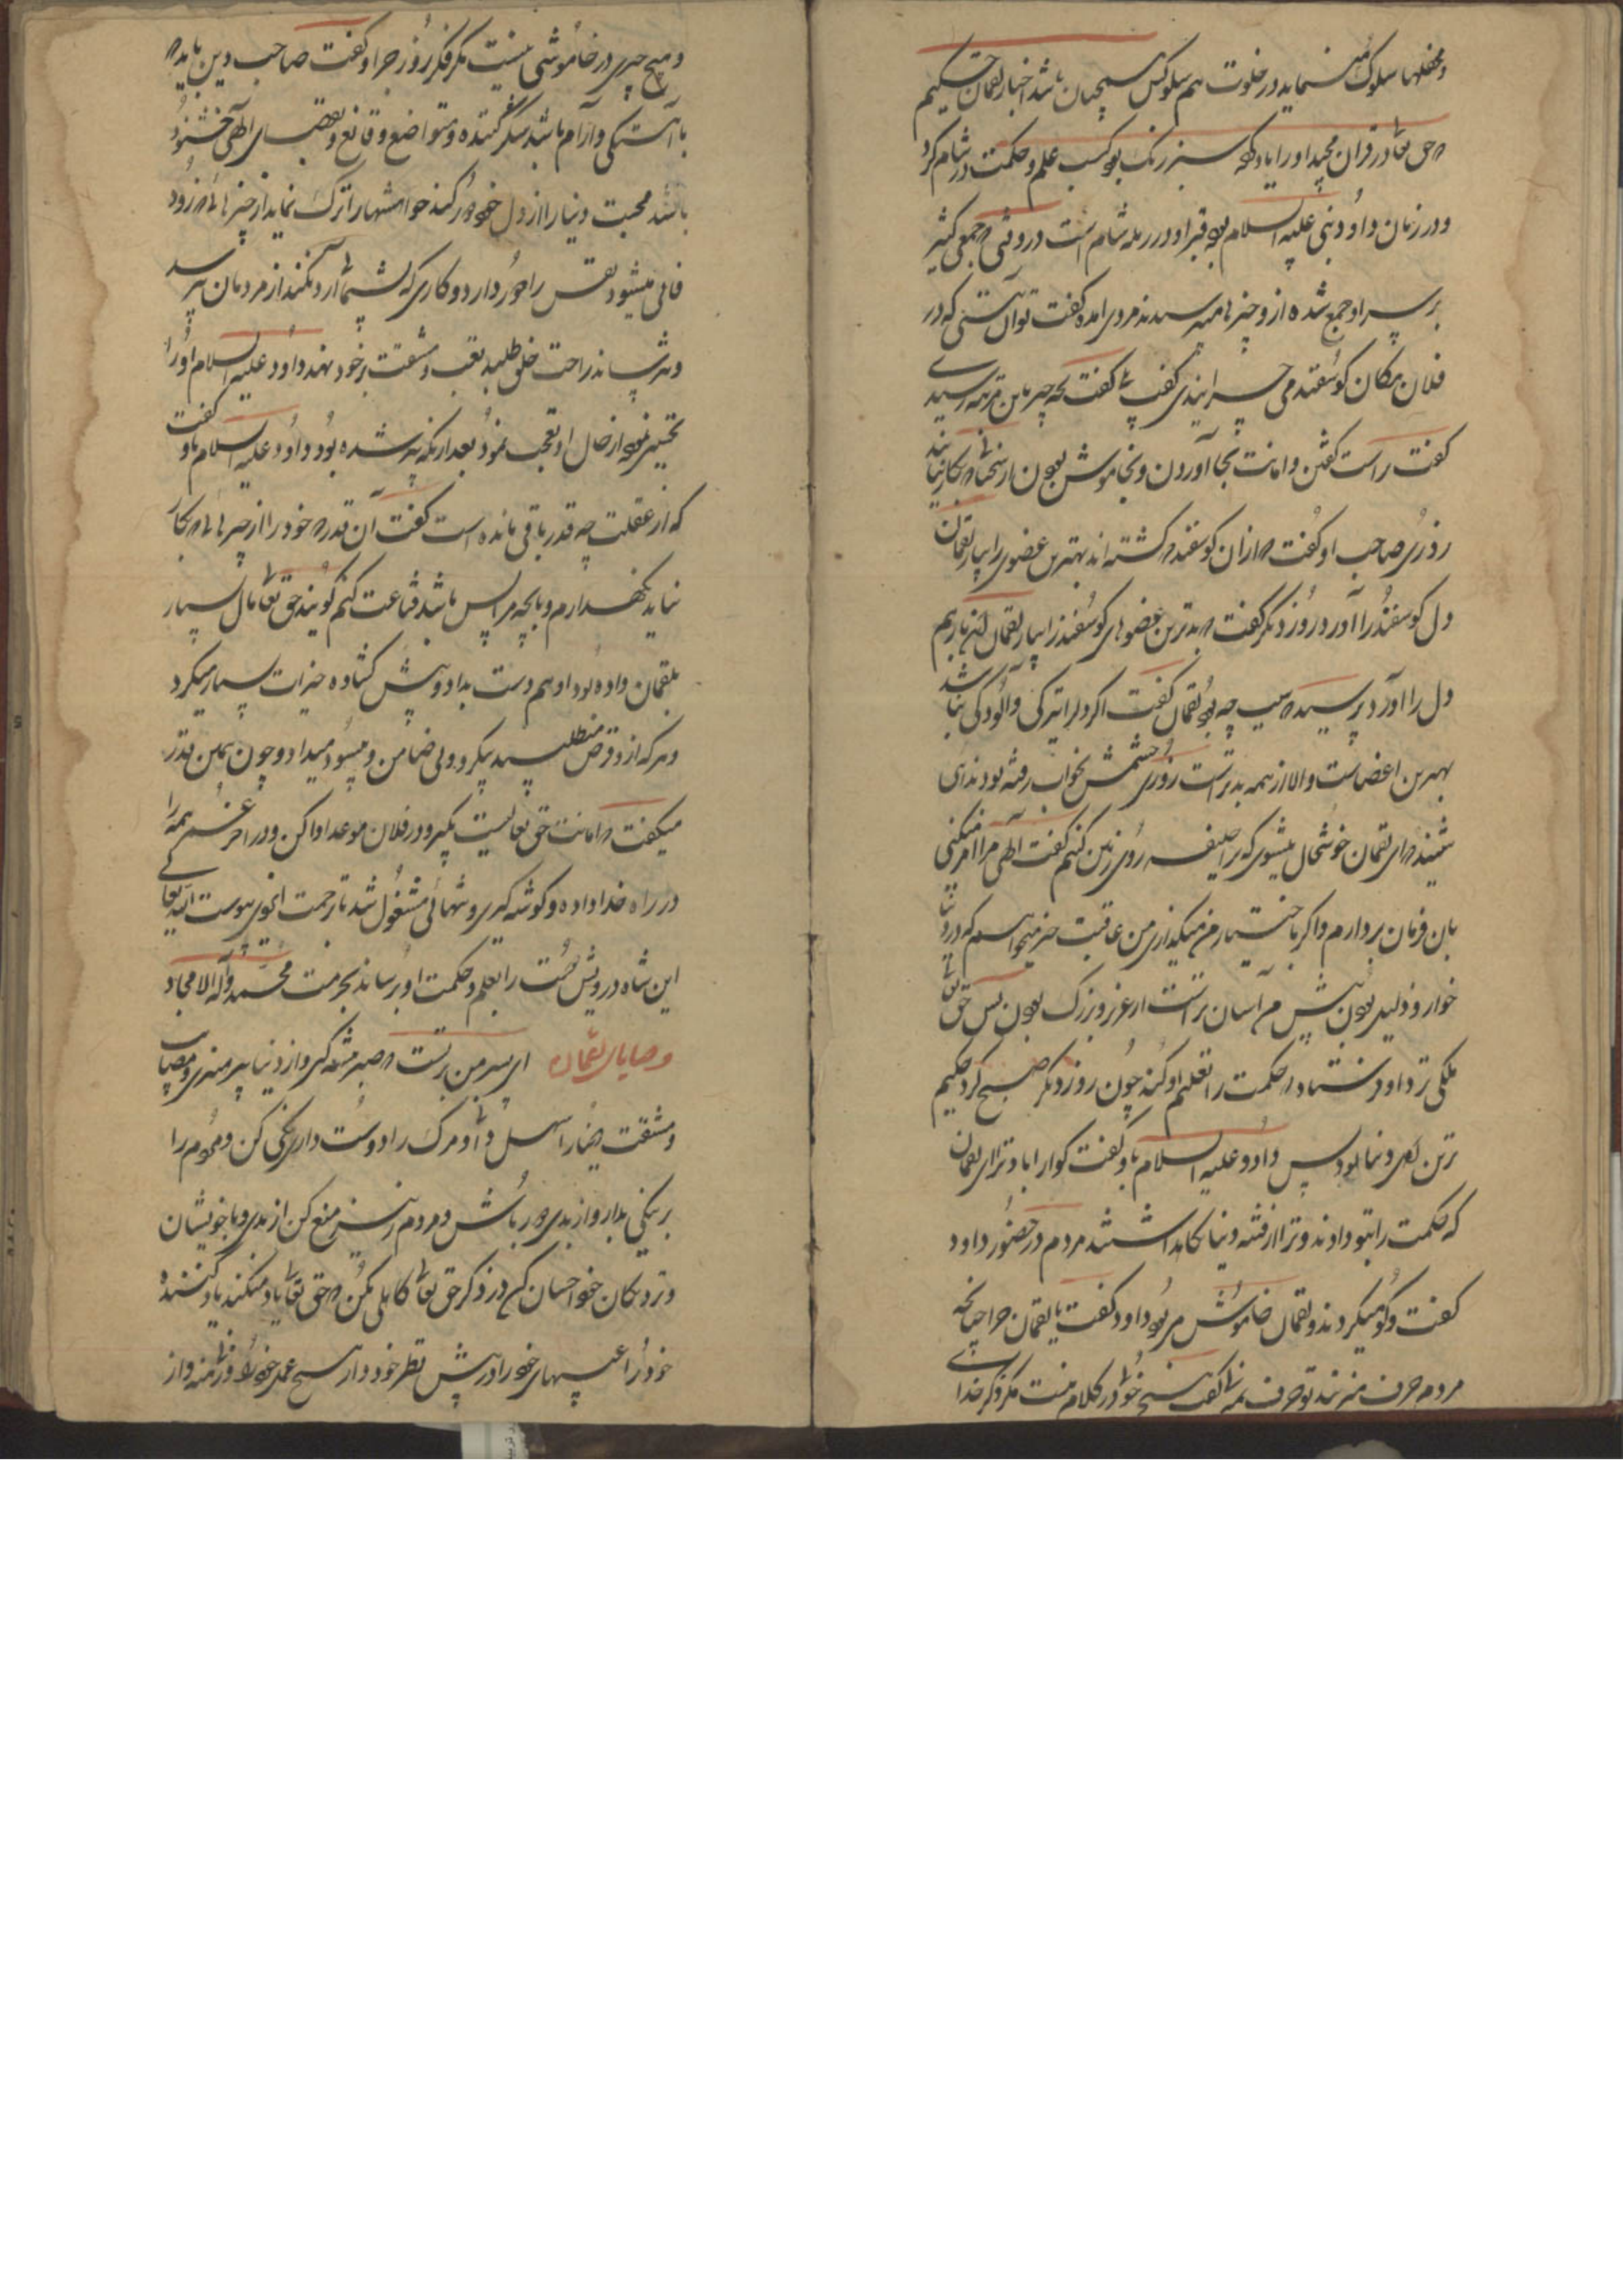 و محفلها سلوک مینماید در خلوت هم سلوکش همچنان باشد اخبار لقمان حکیم
که حق تعالی در قران مجید او را یاد کرده سبز رنگ بوده کسب علم و حکمت در شام کرد
و در زمان داود نبی علیه السلام بوده قبر او در رمله شام است در وقتی که جمعی کثیر
بر سر او جمع شده از و چیزها میپرسیدند مردی امده کفت تو آن نیستی که در
فلان مکان کوسفند می چرانیدی کفت بلی کفت بچه چیز باین مرتبه رسیدی
کفت براست کفتن و امانت بجا آوردن و بخاموش بودن از سخنان که بکار نیایند
روزی صاحب او کفت که ازان کوسفند که کشته اند بهترین عضوی را بیار لقمان
دل کوسفند را آورد روز دیکر کفت که بدترین عضوهای کوسفند را بیار لقمان باز هم
دل را اورد پرسید که سبب چه بود لقمان کفت اکر دل را تیرکی و آلودکی نباشد
بهترین اعضاست و الا از همه بدتر است روزی چشمش بخواب رفته بود ندای
شنید که ای لقمان خوشحال میشوی که ترا خلیفه روی زمین کنم کفت الهی اکر مرا امر میکنی
بان فرمان بردارم و اکر باختیار من میکذاری من عاقبت خیر میخواهم که در دنیا
خوار و ذلیل بودن پیش من آسان تر است از عزیز و بزرک بودن پس حق تعالی
ملکی نزد او فرستاد که حکمت را تعلیم او کند چون روز دیکر صبح کرد حکیم
ترین اهل دنیا بود پس داود علیه السلام باو کفت کوارا باد ترا ای لقمان
که حکمت را بتو دادند و ترا از فتنه دنیا نکاه داشتند مردم در حضور داود
کفت و کو میکردند و لقمان خاموش می بود داود کفت یا لقمان چرا چنانچه
مردم حرف میزنند تو حرف نمیزنی کفت هیچ خوبی در کلام نیست مکر ذکر خدای
و هیچ چیزی در خاموشی نیست مکر فکر روز جزا و کفت صاحب دین باید که
با آهستکی و آرام باشد شکر کننده و متواضع و قانع و بقضای الهی خشنود
باشد محبت دنیا را از دل خود دور کند خواهشها را ترک نماید از چیزهای که زود
فانی میشود نفس را دور دارد و کاری که پشیمانی آرد نکند از مردمان بترسد
و نترساند راحت خلق طلبد تعب و مشقت بر خود نهد داود علیه السلام او را
تحسین نمود از حال او تعجب نمود بعد ازانکه پیر شده بود داود علیه السلام باو کفت
که از عقلت چه قدر باقی مانده است کفت آن قدر که خود را از چیزهای که بکار
نیاید نکهدارم و بانچه مرا بس باشد قناعت کنم کویند حق تعالی مال بسیار
بلقمان داده بود او هم دست بداد و دهش کشاده خیرات بسیار میکرد
و هر که از و قرض میطلبید بیکرو و بی ضامن و بیسود میداد و چون همین قدر
میکفت که امانت حق تعالیست بکیر و در فلان موعد ادا کن و در اخر عمر همه را
در راه خدا داده و کوشه کیری و تنهائی مشغول شد تا برحمت ایزدی پیوست ایزد تعالی
این شاه درویش دوست را بعلم و حکمت او برساند بحرمت محمد و آله الامجاد
وصایای لقمان ای پسر من بر تست که صبر پیشه کیری و از دنیا بپرهیزی و مصایب
و مشقت دنیا را سهل دانی و مرک را دوست داری نیکی کن و مردم را
بر نیکی بدار و از بدی دور باش و مردم را نیز منع کن از بدی و با خویشان
و نزدیکان خود احسان کن در ذکر حق تعالی کاهلی مکن که حق تعالی یاد میکند یاد کننده
خود را عیبهای خود را در پیش نظر خود دار هیچ عمل خود را وزن منه و از